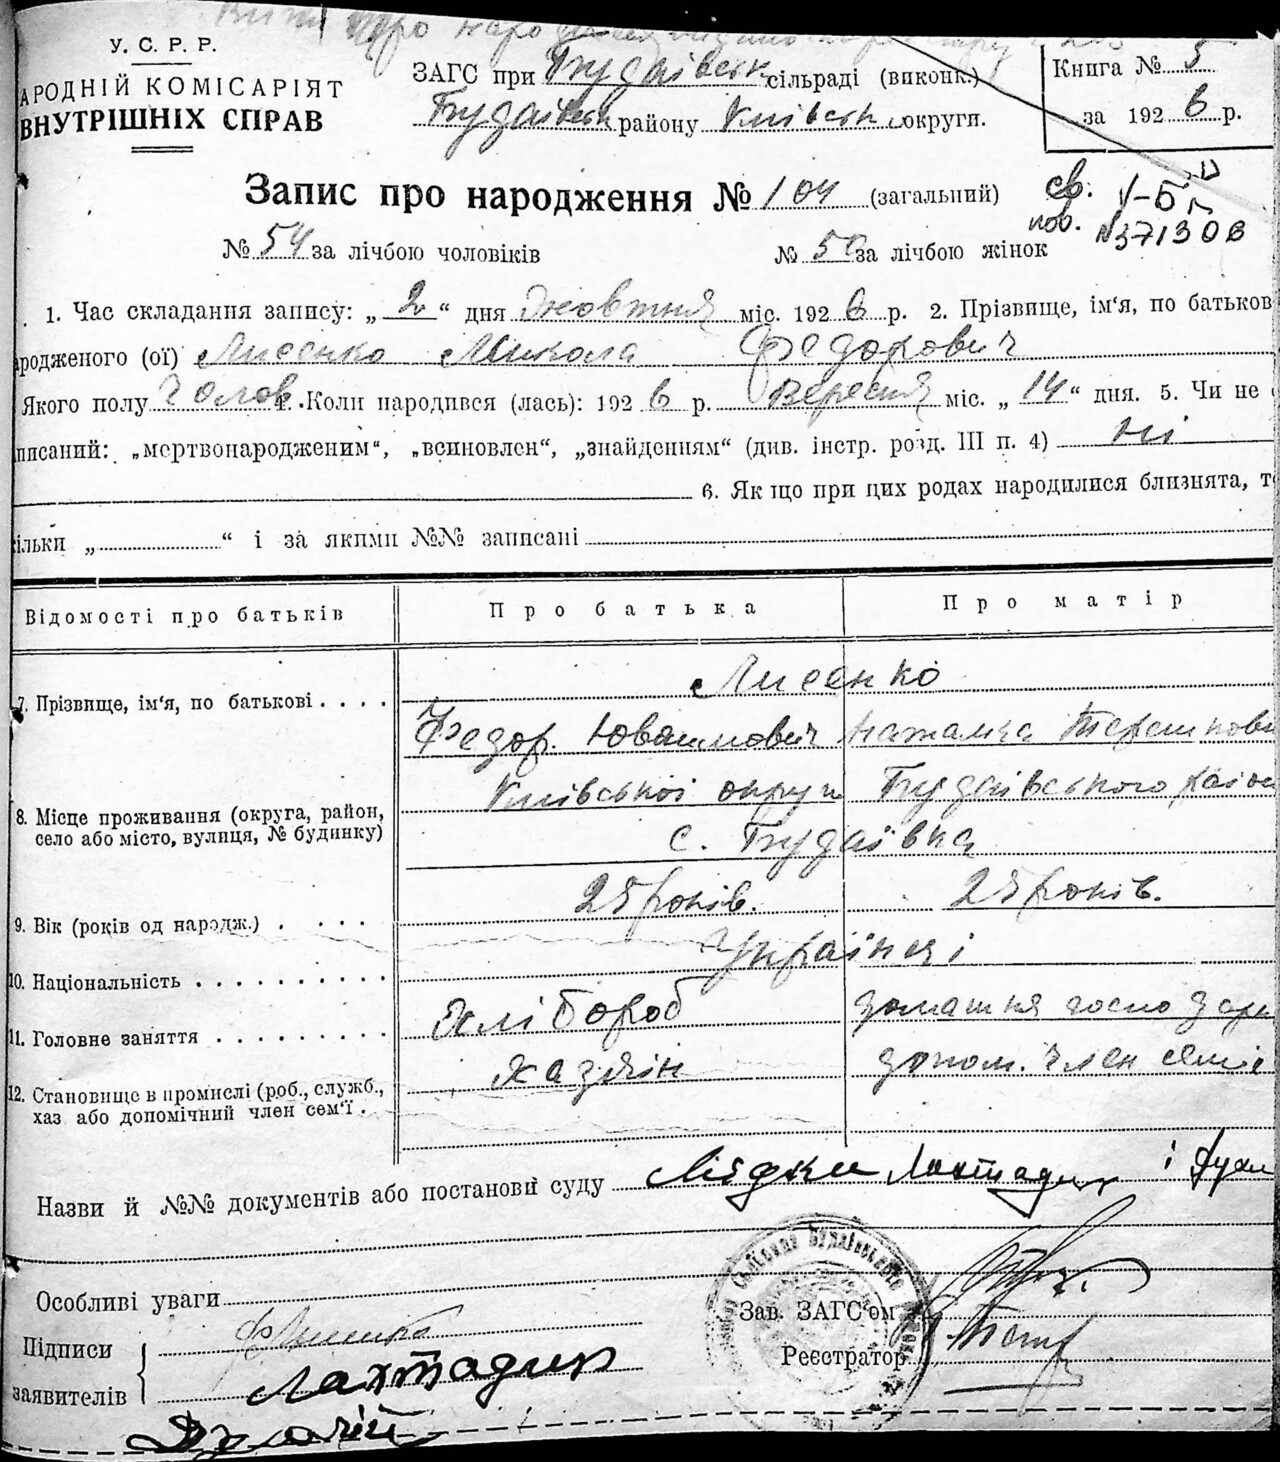 У. С. Р. Р.
АРОДНІЙ КОМІСАРІЯТ
ВНУТРІШНІХ СПРАВ
ЗАГС при Будаївськ сільраді (виконк.)
Будаївськ району Київськ округи.
Книга № 5
за 192 6 р.
Запис про народження № 104 (загальний)
св. V-БП
пов. №371308
№ 54 за лічбою чоловіків № 50 за лічбою жінок
1. Час складання запису: „ 2 “ дня Жовтня міс. 192 6 р. 2. Прізвище, ім'я, по батьков
ародженого (ої) Лисенко Микола Федорович
Якого полу Чолов. 4. Коли народився (лась): 192 6 р. Вересня міс. „ 14 “ дня. 5. Чи не
писаний: „мертвонародженим“, „всиновлен“, „знайденням“ (див. інстр. розд. III п. 4) ні
6. Якщо при цих родах народилися близнята, т
ільки „ “ і за якими №№ записані
Відомості про батьків Про батька Про матір
7. Прізвище, ім'я, по батькові . . . . Лисенко
Федор. Ювашмович Наталка Терешкови
8. Місце проживання (округа, район,
село або місто, вулиця, № будинку)
Київської округи Будаївського район
с. Будаївка
9. Вік (років од народж.) . . . . 25 років. 25 років.
10. Національність . . . . . . . . . . Українці
11. Головне заняття . . . . . . . . . Хлібороб домашня господар
12. Становище в промислі (роб., служб.,
хаз або допомічний член сем'ї . Хазяїн допом. член семіє
Назви й №№ документів або постанови суду Свідки Лахтадир і
Особливі уваги
Зав. ЗАГС'ом
Підписи
заявителів
Ф Лисенко
Лахтадир
Реєстратор